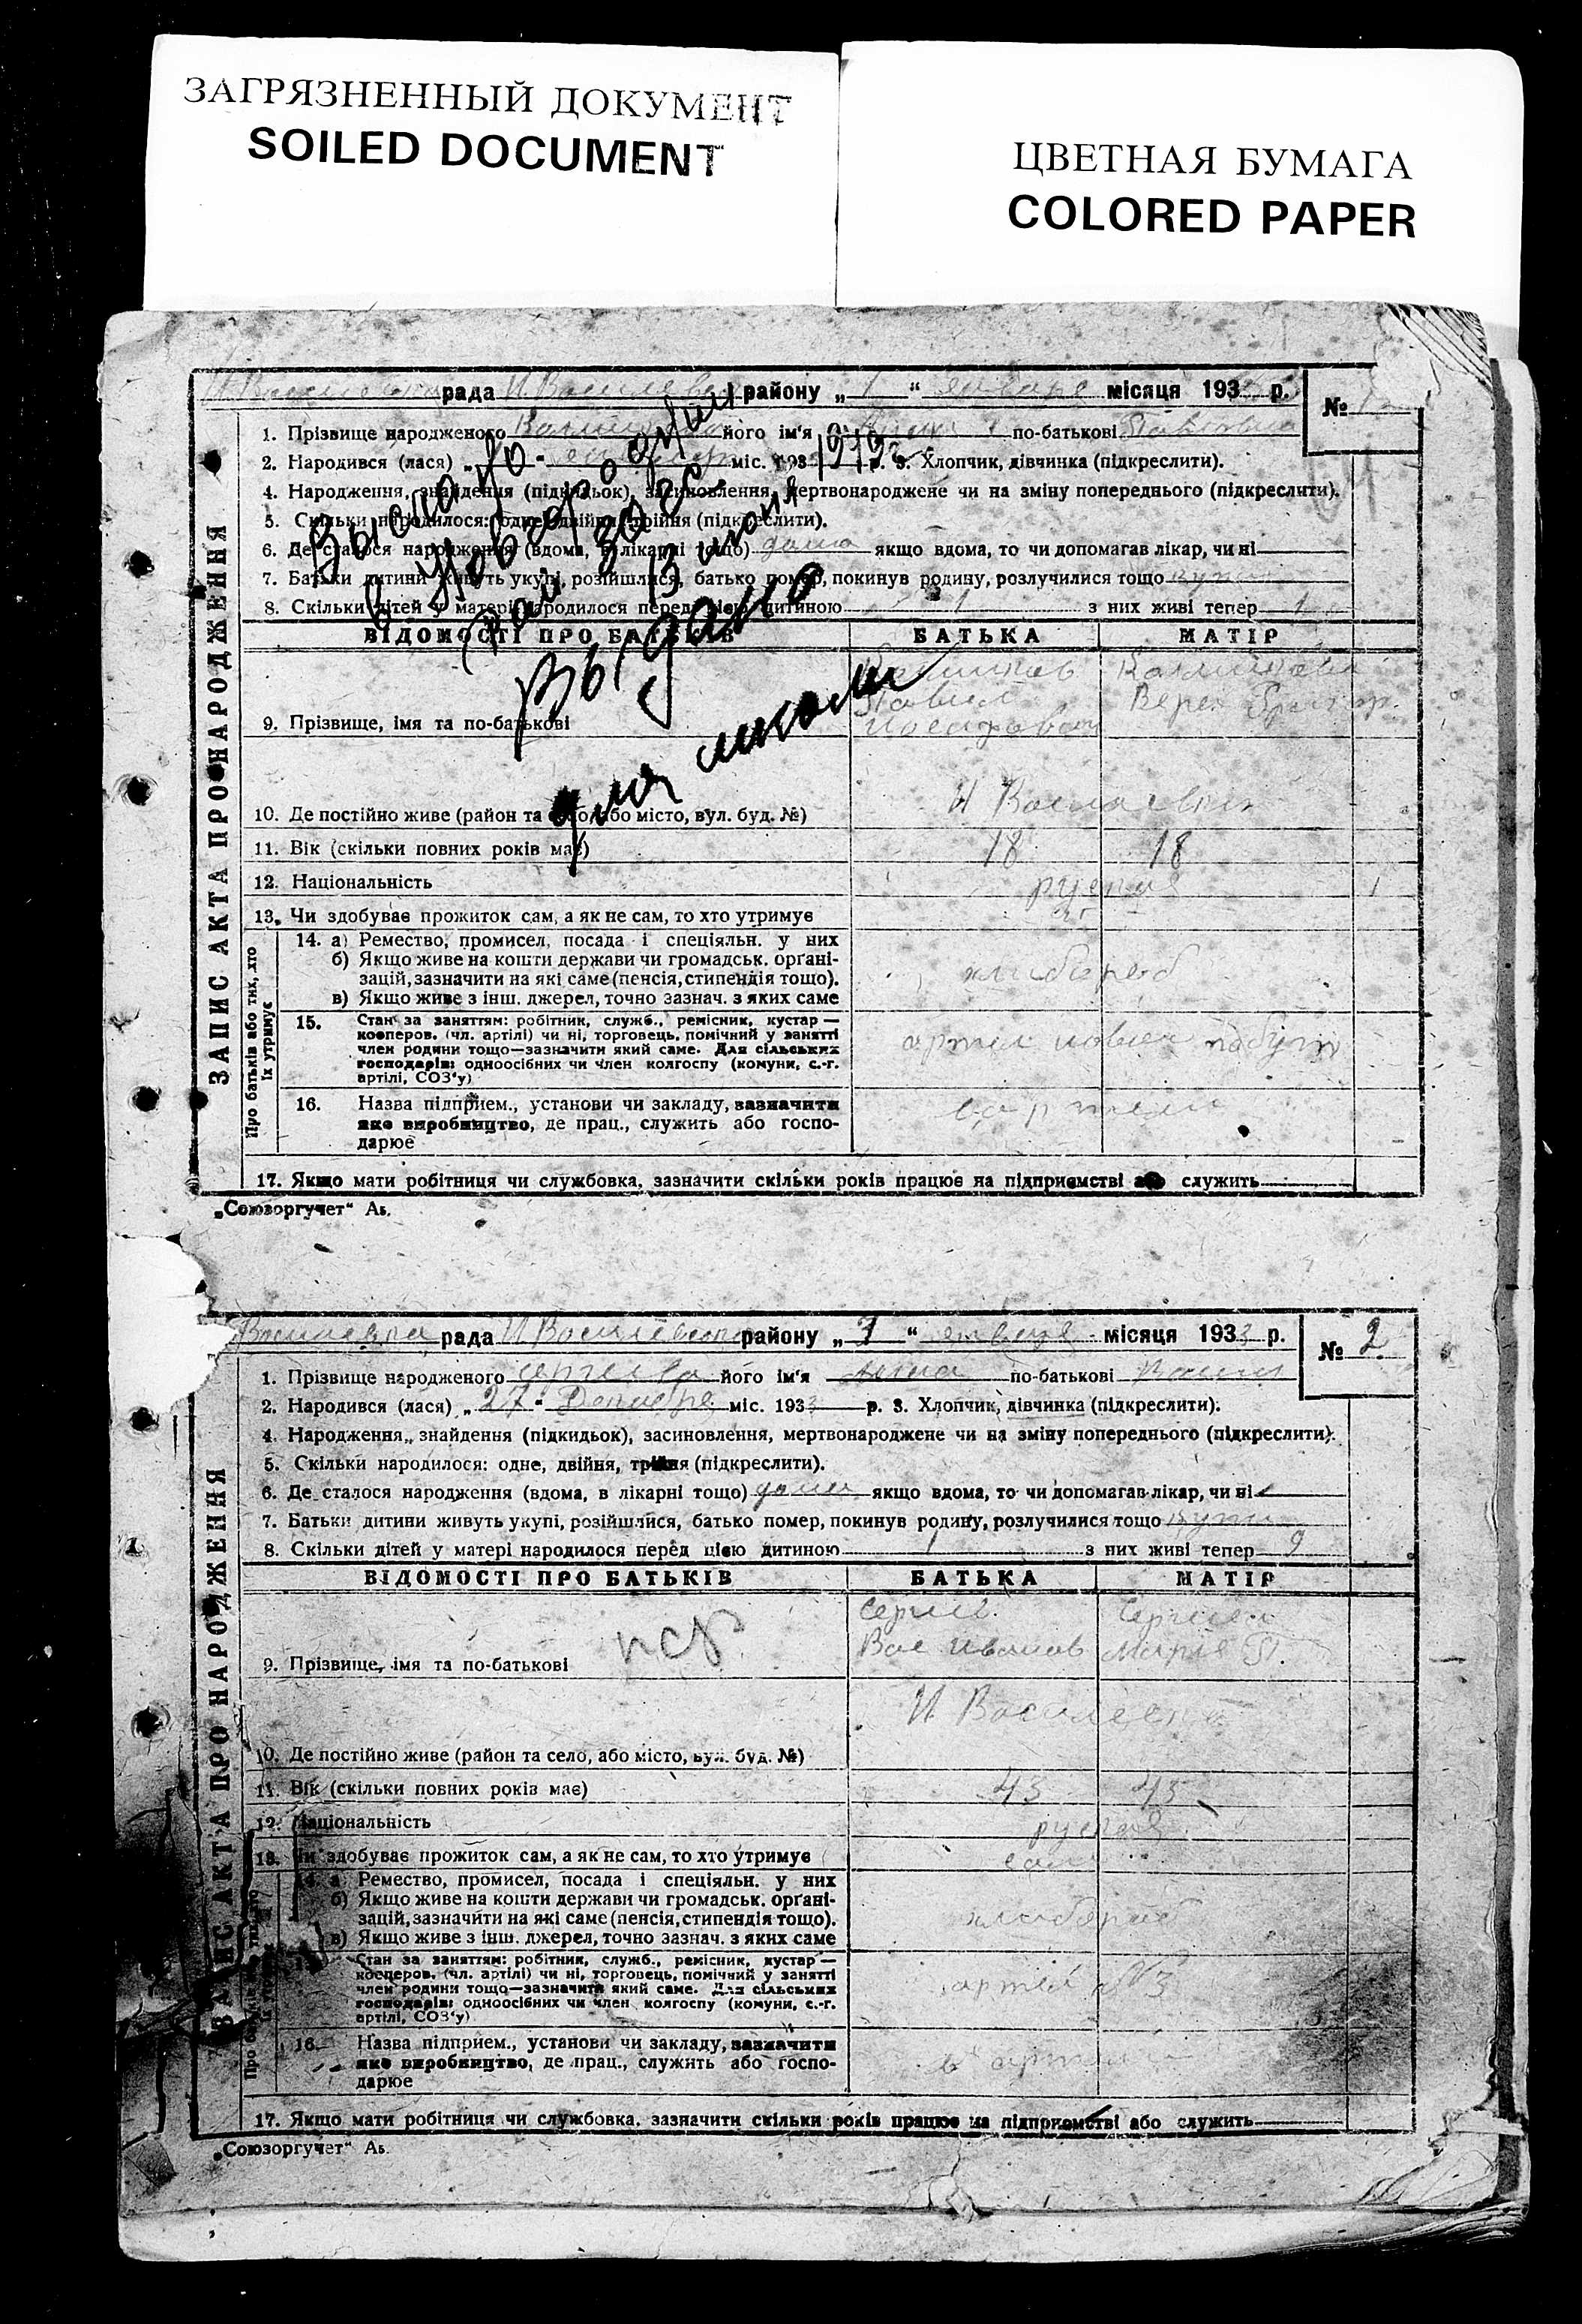 ЗАГРЯЗНЕННЫЙ ДОКУМЕНТ
SOILED DOCUMENT
ЦВЕТНАЯ БУМАГА
COLORED PAPER
ЗАПИС АКТА ПРО НАРОДЖЕННЯ
рада И Василевск району „ 1 “ января місяця 193 р. №
1. Прізвище народженого його ім'я по-батькові Павловна
2. Народився (лася) „ “ міс. 193 р. 3. Хлопчик, дівчинка (підкреслити).
4. Народження, знайдення (підкидьок), засиновлення, мертвонароджене чи на зміну попереднього (підкреслити).
5. Скільки народилося: одне, двійня, трійня (підкреслити).
6. Де сталося народження (вдома, в лікарні тощо) дома якщо вдома, то чи допомагав лікар, чи ні
7. Батьки дитини живуть укупі, розійшлися, батько помер, покинув родину, розлучилися тощо
8. Скільки дітей у матері народилося перед цією дитиною 1 з них живі тепер 1
Выдано
для школи
ВІДОМОСТІ ПРО БАТЬКІВ БАТЬКА МАТІР
Павел Вера
9. Прізвище, імя та по-батькові
И Василевка
10. Де постійно живе (район та село, або місто, вул. буд. №)
11. Вік (скільки повних років має) 18 18
12. Національність руская
13. Чи здобуває прожиток сам, а як не сам, то хто утримує
Про батьків або тих, хто їх утримує
14. а) Ремество, промисел, посада і спеціяльн. у них
б) Якщо живе на кошти держави чи громадськ. орґані-
зацій, зазначити на які саме (пенсія, стипендія тощо).
в) Якщо живе з інш. джерел, точно зазнач. з яких саме
хлибороб
15. Стан за заняттям: робітник, служб., ремісник, кустар —
кооперов. (чл. артілі) чи ні, торговець, помічний у занятті
член родини тощо—зазначити який саме. Для сільських
господарів: одноосібних чи член колгоспу (комуни, с.-г.
артілі, СОЗ'у)
16. Назва підприєм., установи чи закладу, зазначити
яке виробництво, де прац., служить або госпо-
дарює
17. Якщо мати робітниця чи службовка, зазначити скільки років працює на підприємстві або служить
„Союзоргучет“ Аь.
ЗАПИС АКТА ПРО НАРОДЖЕННЯ
Василевка рада И Василевска району „ 3 “ января місяця 1933 р. № 2
1. Прізвище народженого Сергева його ім'я Анна по-батькові
2. Народився (лася) „ 27 “ Декабря міс. 193 р. 3. Хлопчик, дівчинка (підкреслити).
4. Народження, знайдення (підкидьок), засиновлення, мертвонароджене чи на зміну попереднього (підкреслити).
5. Скільки народилося: одне, двійня, трійня (підкреслити).
6. Де сталося народження (вдома, в лікарні тощо) дома якщо вдома, то чи допомагав лікар, чи ні
7. Батьки дитини живуть укупі, розійшлися, батько помер, покинув родину, розлучилися тощо
8. Скільки дітей у матері народилося перед цією дитиною з них живі тепер 9
ВІДОМОСТІ ПРО БАТЬКІВ БАТЬКА МАТІР
Вас Иванов Мария П.
9. Прізвище, імя та по-батькові
И Василевка
10. Де постійно живе (район та село, або місто, вул. буд. №)
11. Вік (скільки повних років має) 43 43
12. Національність руская
13. Чи здобуває прожиток сам, а як не сам, то хто утримує сам
14. а) Ремество, промисел, посада і спеціяльн. у них
б) Якщо живе на кошти держави чи громадськ. орґані-
зацій, зазначити на які саме (пенсія, стипендія тощо).
в) Якщо живе з інш. джерел, точно зазнач. з яких саме
хлибороб
Стан за заняттям: робітник, служб., ремісник, кустар —
кооперов. (чл. артілі) чи ні, торговець, помічний у занятті
член родини тощо—зазначити який саме. Для сільських
господарів: одноосібних чи член колгоспу (комуни, с.-г.
артілі, СОЗ'у)
артел №3
16. Назва підприєм., установи чи закладу, зазначити
яке виробництво, де прац., служить або госпо-
дарює
17. Якщо мати робітниця чи службовка, зазначити скільки років працює на підприємстві або служить
„Союзоргучет“ Аь.